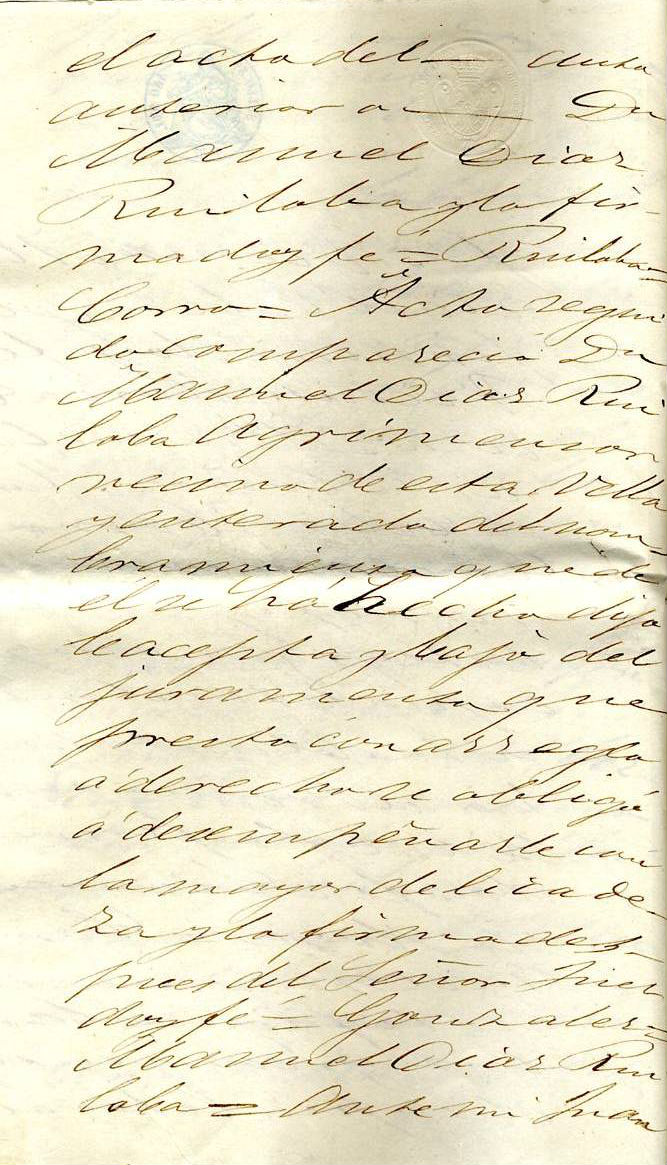 el acto del — auto
anterior a — Dn
Manuel Diaz
Ruiloba y lo fir-
ma doy fe = Ruiloba =
Corro = Acto segui
do comparecio Dn
Manuel Diaz Rui
loba Agrimensor
vecino de esta Villa
y enterado del nom-
bramiento que de
el se há hecho dijo
le acepta y bajo del
juramento que
presto con arreglo
á derecho se obligó
á desempeñarle con
la mayor delicade-
za y lo firma des-
pues del Señor Juez
doy fe = Gonzalez =
Manuel Diaz Rui
loba = Ante mi Juan